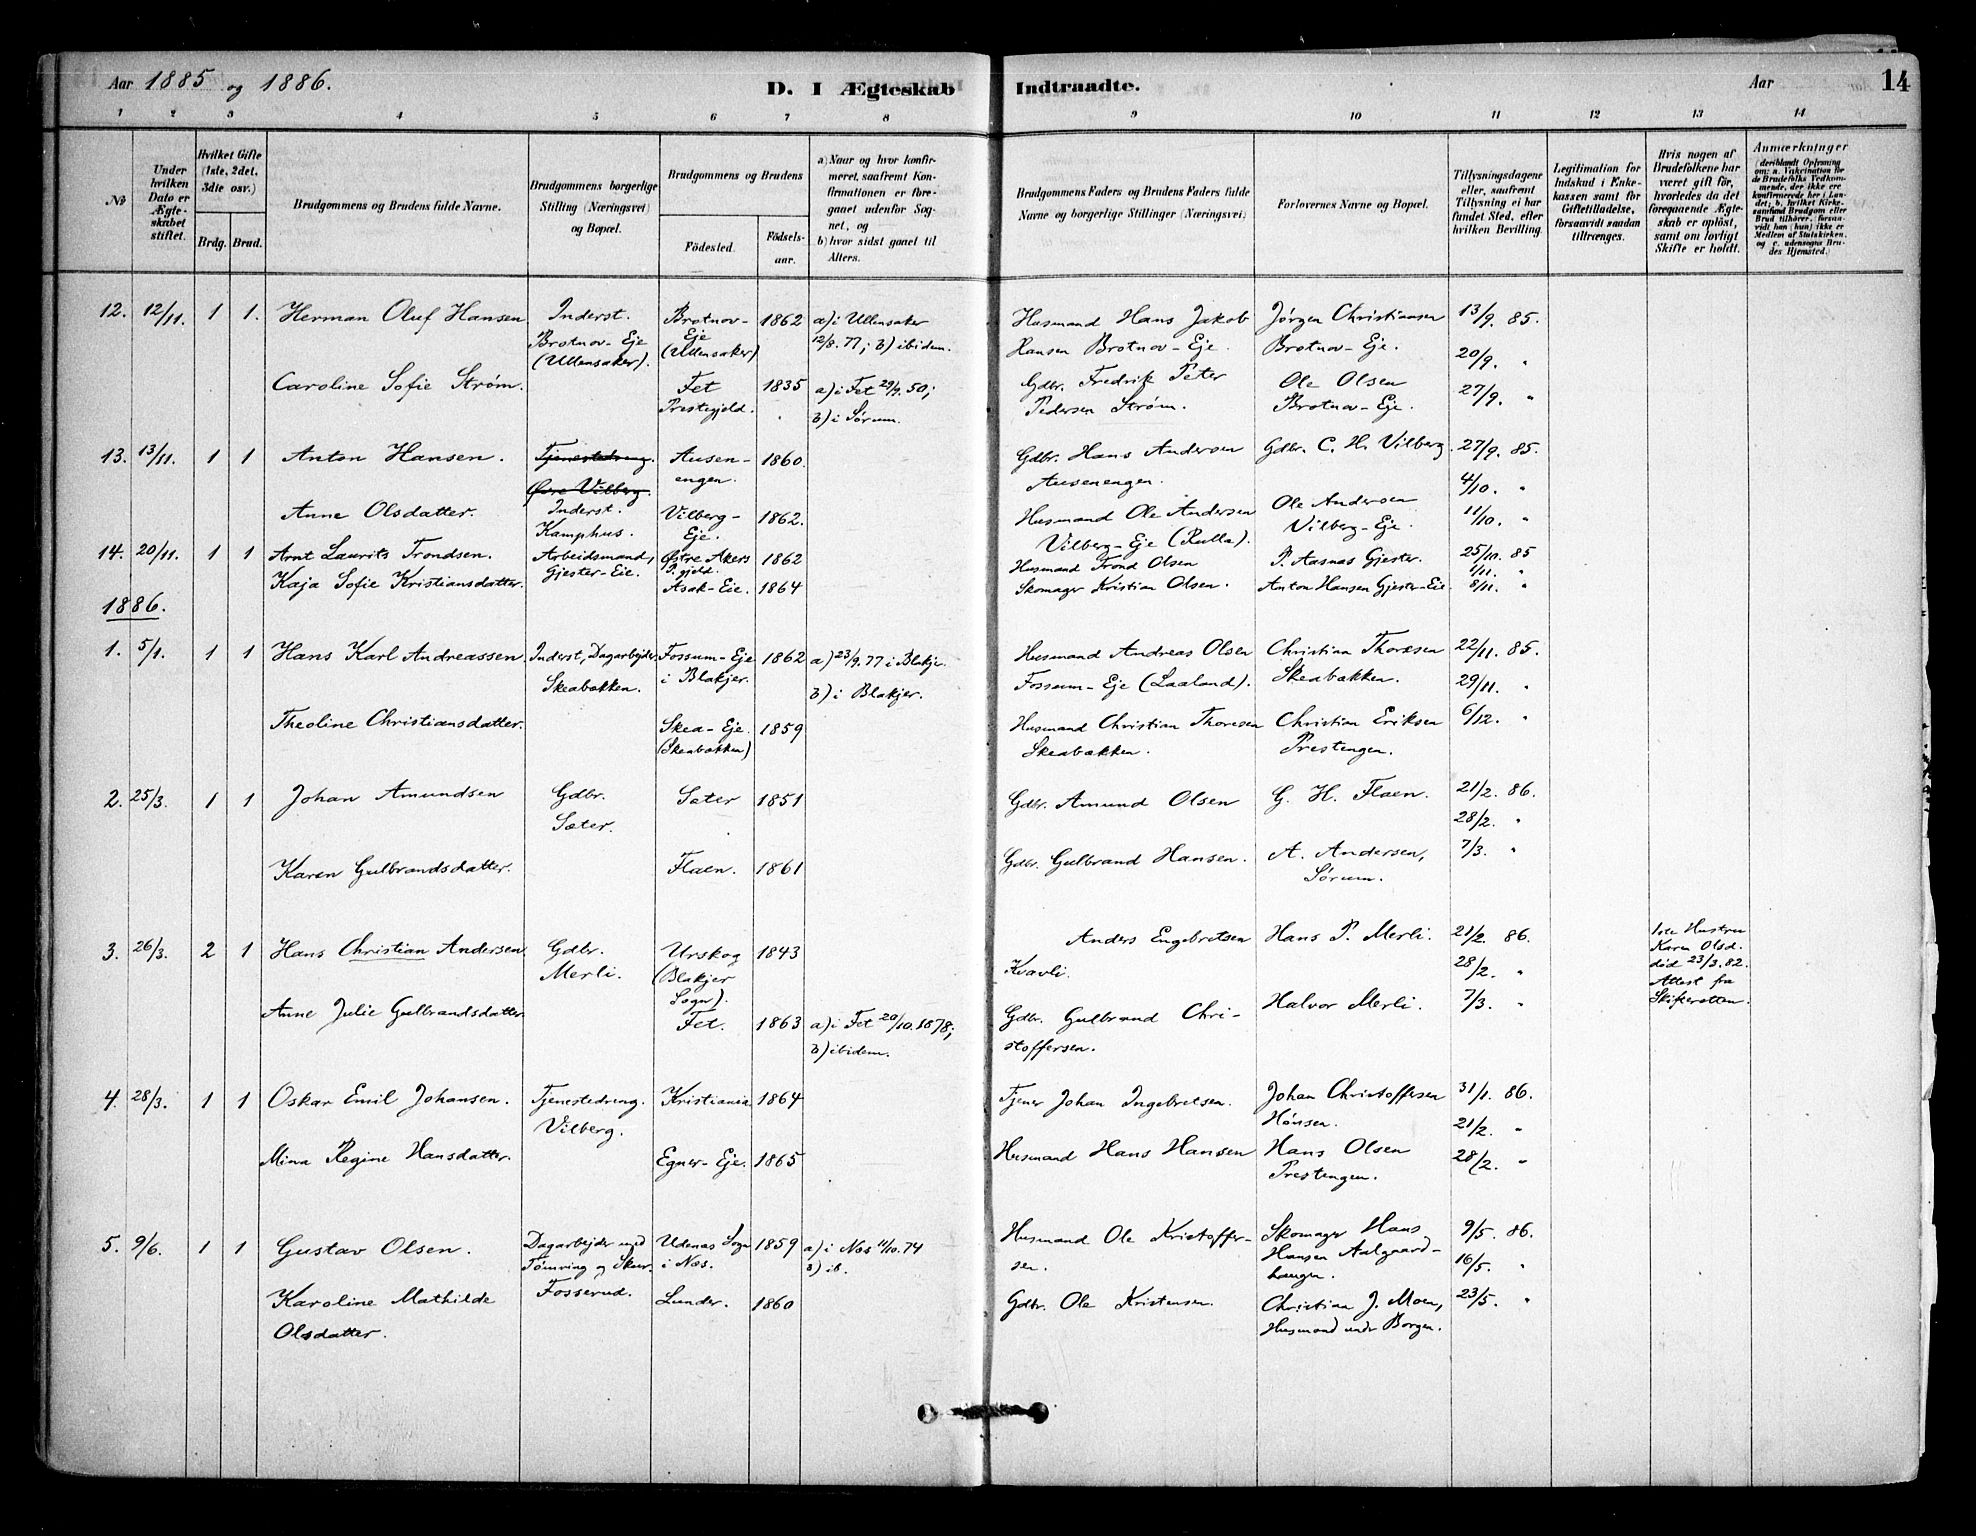 Aar 1885 og 1886.
D. I Ægteskab Indtraadte.
Aar
14
1 2 3 4 5 6 7 8 9 10 11 12 13 14
№
Under hvilken Dato er Ægteskabet stiftet.
Hvilket Gifte (1ste, 2det, 3die osv.)
Brdg. Brud.
Brudgommens og Brudens fulde Navne.
Brudgommens borgerlige Stilling (Næringsvei) og Bopæl.
Brudgommens og Brudens
Födested. Födselsaar.
a) Naar og hvor konfirmeret, saafremt Konfirmationen er foregaaet udenfor Sognet, og
b) hvor sidst gaaet til Alters.
Brudgommens Faders og Brudens Faders fulde Navne og borgerlige Stillinger (Næringsvei)
Forlovernes Navne og Bopæl.
Tillysningsdagene eller, saafremt Tillysning ei har fundet Sted, efter hvilken Bevilling.
Legitimation for Indskud i Enkekassen samt for Giftetilladelse, forsaavidt saadan tiltrænges.
Hvis nogen af Brudefolkene har været gift för, hvorledes da det foregaaende Ægteskab er oplöst, samt om lovligt Skifte er holdt.
Anmærkninger
12. 12/11. 1 1. Herman Oluf Hansen Inderst. Brotnov- 1862 a) i Ullensaker Husmand Hans Jakob Jörgen Christiansen 13/9. 85.
Brotnov-Eje Eje 12/8. 77; b) ibidem. Hansen Brotnov-Eje. Brotnov-Eje. 20/9. "
(Ullensaker). (Ullensaker)
Caroline Sofie Strøm. Fet 1835 a) i Fet 29/9. 50; Gdbr. Fredrik Peter Ole Olsen 27/9. "
Prestegjeld. b) i Sörum. Pedersen Strøm. Brotnov-Eje.
13. 13/11. 1 1 Anton Hansen. Tjenestedreng. Ausen- 1860. Gdbr. Hans Andersen Gdbr. C. H. Vilberg. 27/9. 85.
Övre Vilberg. engen. Ausenengen. 4/10. "
Anne Olsdatter. Inderst. Vilberg- 1862. Husmand Ole Andersen Ole Andersen 11/10. "
Kamphus. Eje. Vilberg-Eje (Rulla). Vilberg-Eje.
14. 20/11. 1 1 Arnt Laurits Trondsen. Arbeidsmand, Østre Akers 1862 Husmand Trond Olsen P. Aasnas Gjester. 25/10. 85
Gjester-Eie. P.gjeld. 1/11. "
Kaja Sofie Kristiansdatter. Asak-Eie. 1864 Skomager Kristian Olsen. Anton Hansen Gjester-Eie. 8/11. "
1886.
1. 5/1. 1 1 Hans Karl Andreassen Inderst, Dagarbejder Fossum-Eje 1862 a) 23/9. 77 i Blakje. Husmand Andreas Olsen Christian Thoresen 22/11. 85.
Skeabækken. i Blakjer. b) i Blakjer. Fossum-Eje (Laaland). Skeabækken. 29/11. "
Theoline Christiansdatter. Skea-Eje. 1859 Husmand Christian Thoresen Christian Eriksen 6/12. "
(Skeabækken) Skeabækken. Prestengen.
2. 25/3. 1 1 Johan Amundsen Gdbr. Sæter 1851 Gdbr. Amund Olsen G. H. Flaen. 21/2. 86.
Sæter. 28/2. "
Karen Gulbrandsdatter. Flaen. 1861 Gdbr. Gulbrand Hansen. A. Andersen, 7/3. "
Sörum.
3. 26/3. 2 1 Hans Christian Andersen. Gdbr. Urskog 1843 Anders Engebretsen Hans P. Merli. 21/2. 86. 1ste Hustru
Merli. (Blakjer Kvavli. 28/2. " Karen Olsd.
Sogn). død 23/3. 82.
Anne Julie Gulbrandsdatter. Fet. 1863 a) i Fet 20/10. 1878; Gdbr. Gulbrand Chri- Halvor Merli. 7/3. " Attest fra
b) ibidem. stoffersen. Skifteretten.
4. 28/3. 1 1 Oskar Emil Johansen. Tjenestedreng. Kristiania 1864 Tjener Johan Ingebretsen. Johan Christoffersen 31/1. 86.
Vilberg. Hönsen. 21/2. "
Mina Regine Hansdatter. Egner-Eje. 1865 Husmand Hans Hansen Hans Olsen 28/2. "
Prestengen.
5. 9/6. 1 1 Gustav Olsen. Dagarbejder ved Udenæs Sogn 1859 a) i Næs 11/10. 74 Husmand Ole Kristoffer- Skomager Hans 9/5. 86.
Tømring og Skur. i Næs. b) ib. sen. Hansen Aalgaard- 16/5. "
Fosserud. haugen.
Karoline Mathilde Lunder. 1860 Gdbr. Ole Kristensen. Christian J. Moen, 23/5. "
Olsdatter. Husmand under Borgen.